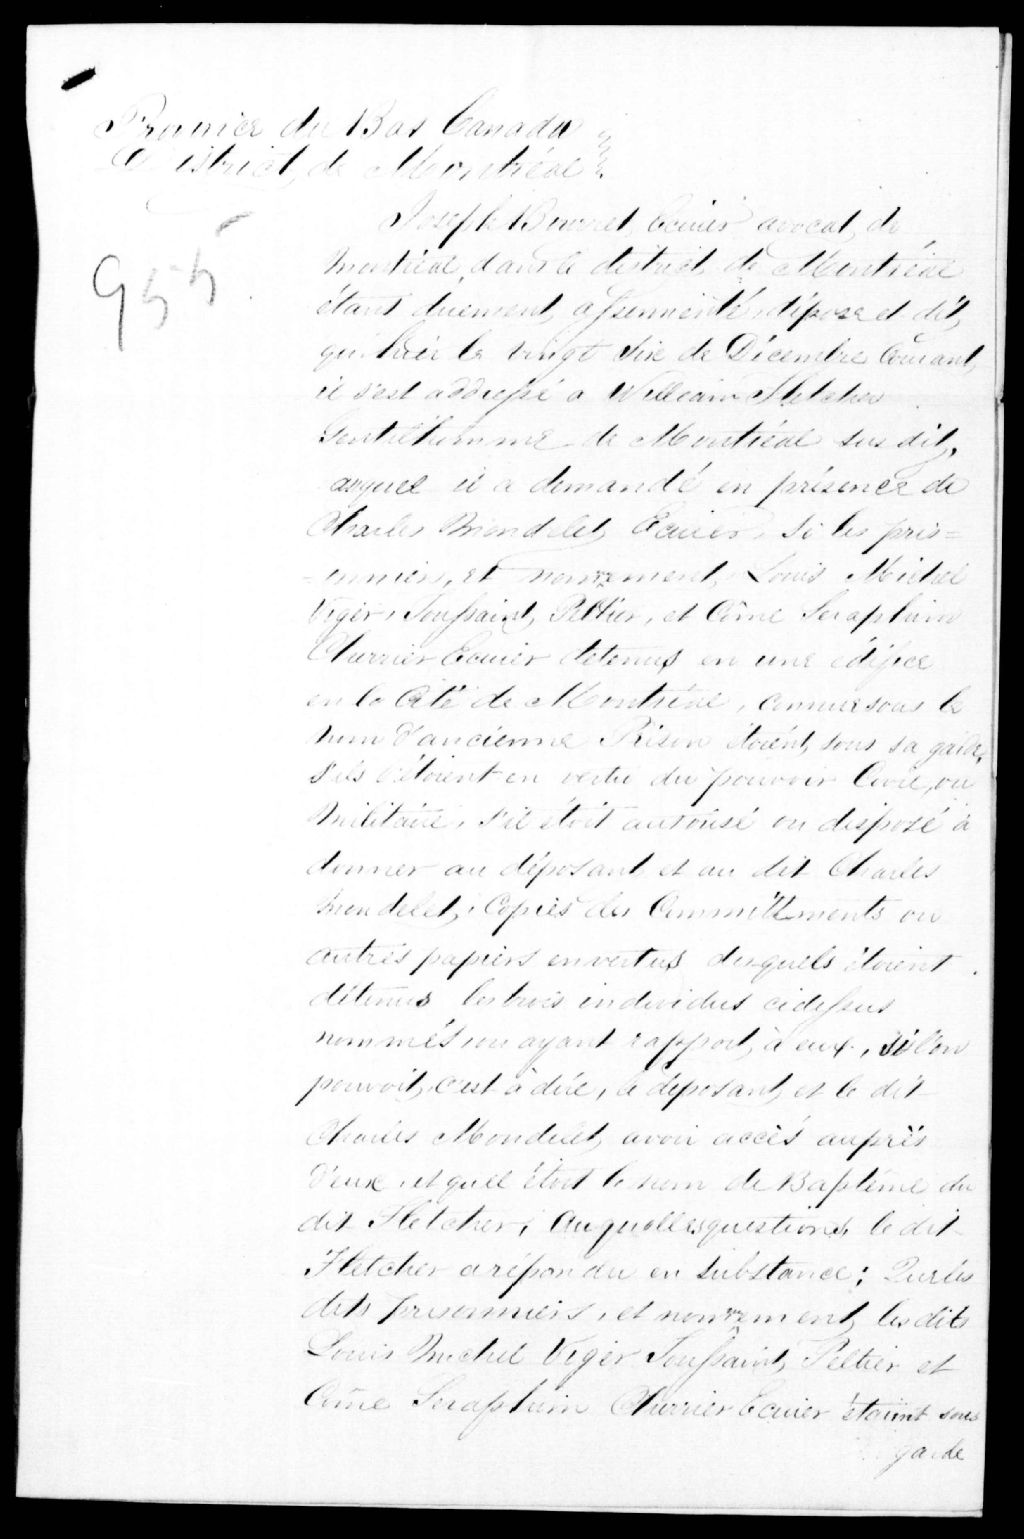 Province du Bas Canada
District de Montréal
955
Joseph Bourret Ecuier avocat, de
Montréal, dans le district de Montréal
étant duement assermenté, dépose et dit,
qu'hier le vingt six de Décembre Courant,
il s'est addressé a William Fletcher
Gentilhomme de Montréal sus dit,
auquel il a demandé en présence de
Charles Mondelet, Ecuier, si les pris=
=onniers, et nommement, Louis Michel
Viger, Toussaint Peltier, et Côme Seraphim
Cherrier Ecuier détenus en une édifice
en la Cité de Montréal, connue sous le
nom d'ancienne Prison étoient sous sa garde,
s'ils étoient en vertu du pouvoir Civil, ou
Militaire, s'il étoit autorisé ou disposé à
donner au déposant et au dit Charles
Mondelet, Copies des Committments ou
autres papiers en vertus desquels étoient
détenus les trois individus cidessus
nommés ou ayant rapport à eux, si l'on
pouvoit, c'est à dire, le déposant, et le dit
Charles Mondelet, avoir accès auprès
d'eux, et quel étoit le nom de Baptême du
dit Fletcher; Auquelles questions le dit
Fletcher a répondu en substance; Que les
dits prisonniers, et nommement, les dits
Louis Michel Viger Toussaint Peltier et
Côme Seraphim Cherrier Ecuier étaient sous
garde